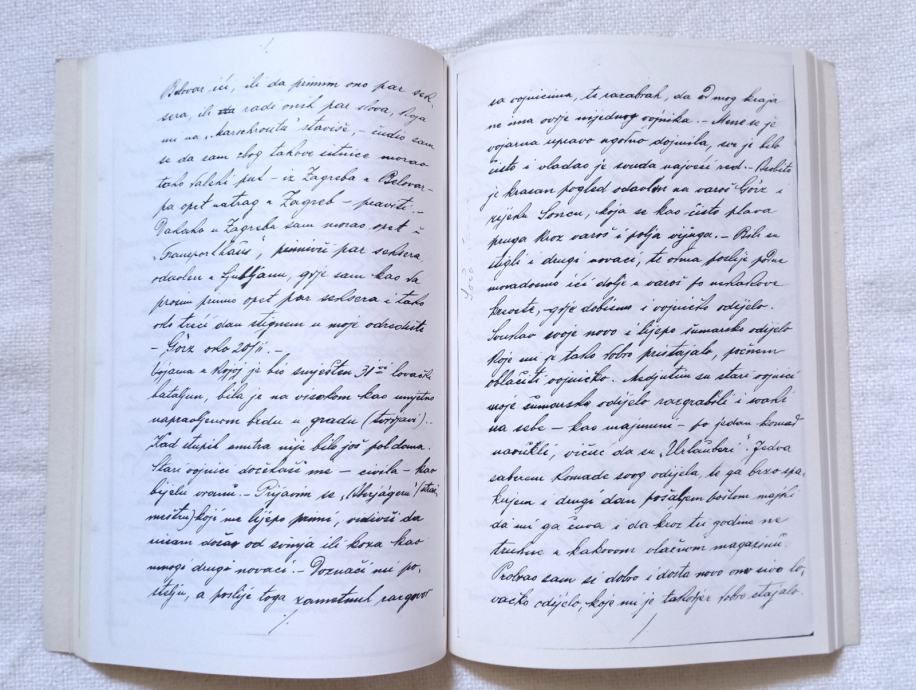 Belovar ići, ili da primim ono par sek-
sera, ili radi onih par slova, koja
mi na „Marschroutu" staviše, – čudio sam
se da sam zbog takove sitnice morao
tako daleki put – iz Zagreba u Belovar –
pa opet natrag u Zagreb – praviti. –
Dakako u Zagrebu sam morao opet u
„Transporthaus", primivši par seksera,
odavlen u Ljubljanu, gdje sam kao da
prosim primio opet par seksera i tako
oko treći dan stignem u moje odredište
– Görz oko 20/II. –
Vojarna u kojoj je bio smješten 31. lovački
bataljun, bila je na visokom kao umjetno
napravljenom brdu u gradu (tvrdjavi).
Kad stupih unutra nije bilo još pol dana.
Stari vojnici dočekaše me – civila – kao
bijelu vranu. – Prijavim se
koji me lijepo primi, vidivši da
nisam došao od svinja ili koza kao
mnogi drugi novaci. – Doznači mi po-
stelju, a poslije toga zametnuh razgovor
sa vojnicima, te razabrah, da iz mog kraja
ne ima ovdje nijednog vojnika. – Mene se je
vojarna upravo ugodno dojmila, sve je bilo
čisto i vladao je svuda najveći red. – Osobito
je krasan pogled odavlen na varoš Görz i
rijeku Soncu, koja se kao čisto plava
pruga kroz varoš i polja vijuga. – Bili su
stigli i drugi novaci, te odma poslije podne
moradosmo ići dolje u varoš po nekakove
krevete, – gdje dobismo i vojničko odijelo.
Svukav svoje novo i lijepo šumarsko odijelo
koje mi je tako dobro pristajalo, počnem
oblačiti vojničko. Medjutim su stari vojnici
moje šumarsko odijelo razgrabili i svaki
na sebe – kao majmuni – po jedan komad
navukli, vičuć da su „Urlauberi". Jedva
saberem komade svog odijela, te ga brzo spa-
kujem i drugi dan pošaljem poštom majki
da mi ga čuva i da kroz tri godine ne
trubne u kakovom vlažnom magazinu.
Probrao sam si dobro i dosta novo ono sivo lo-
vačko odijelo, koje mi je također dobro stajalo.